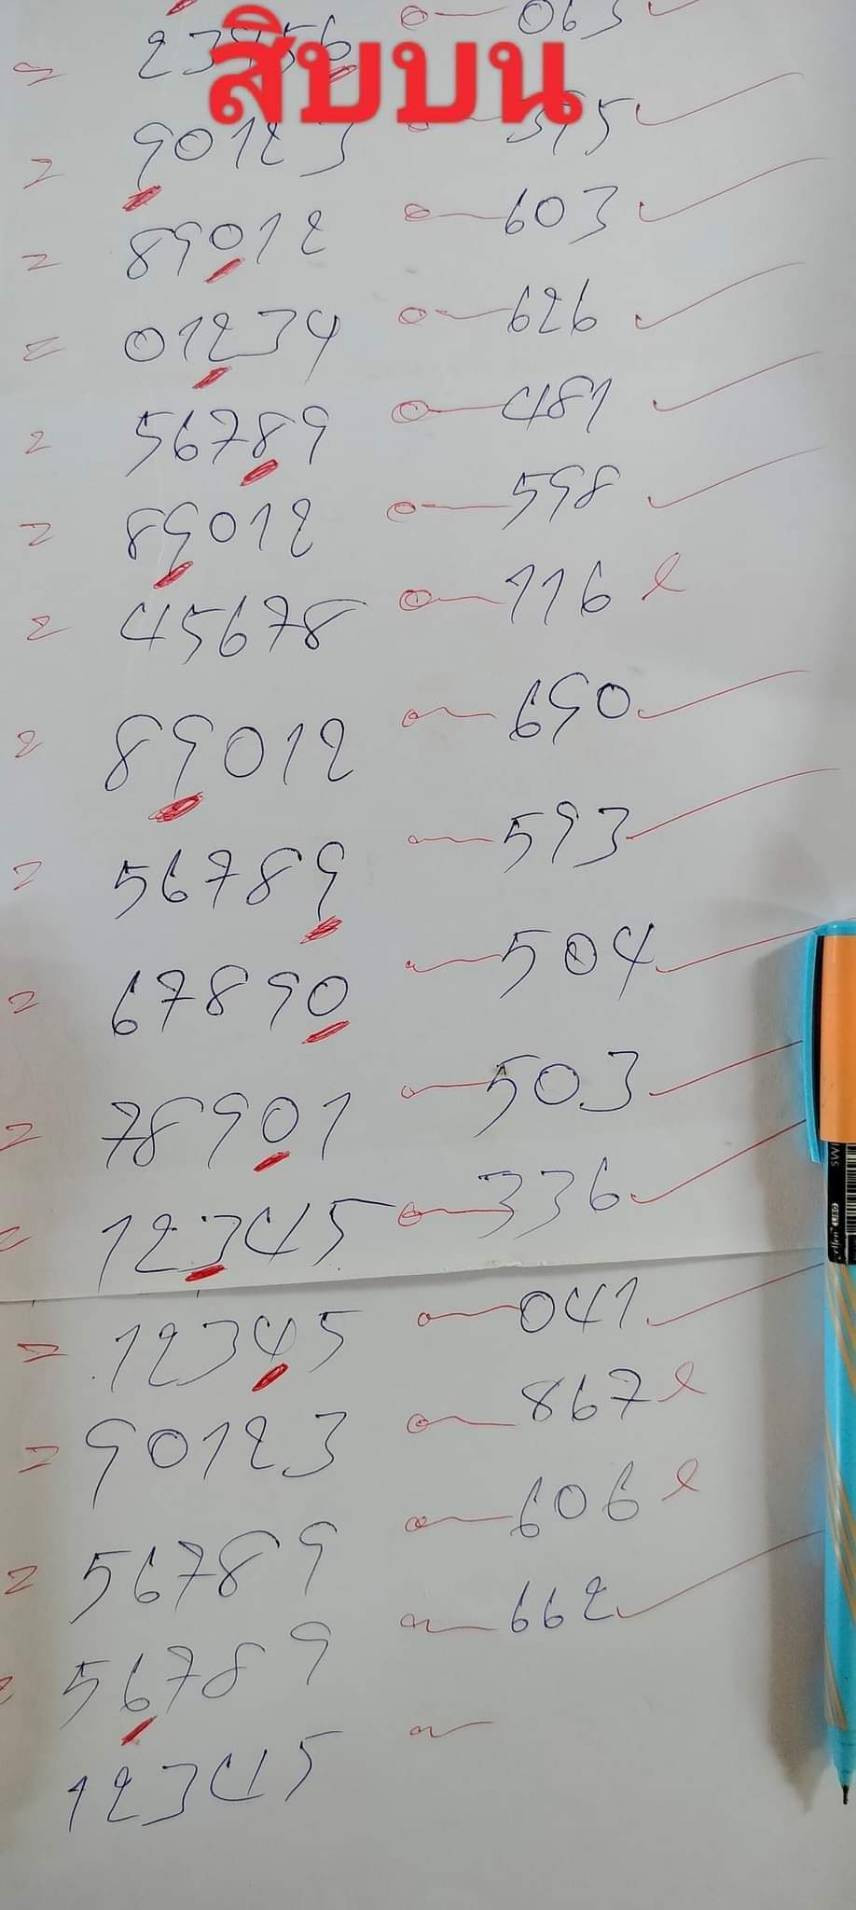 063
สิบบน
90123
603
89012
626
01234
481
56789
598
89012
116
45678
690
89012
593
56789
504
67890
503
78901
336
12345
041
12345
867
90123
606
56789
662
56789
12345